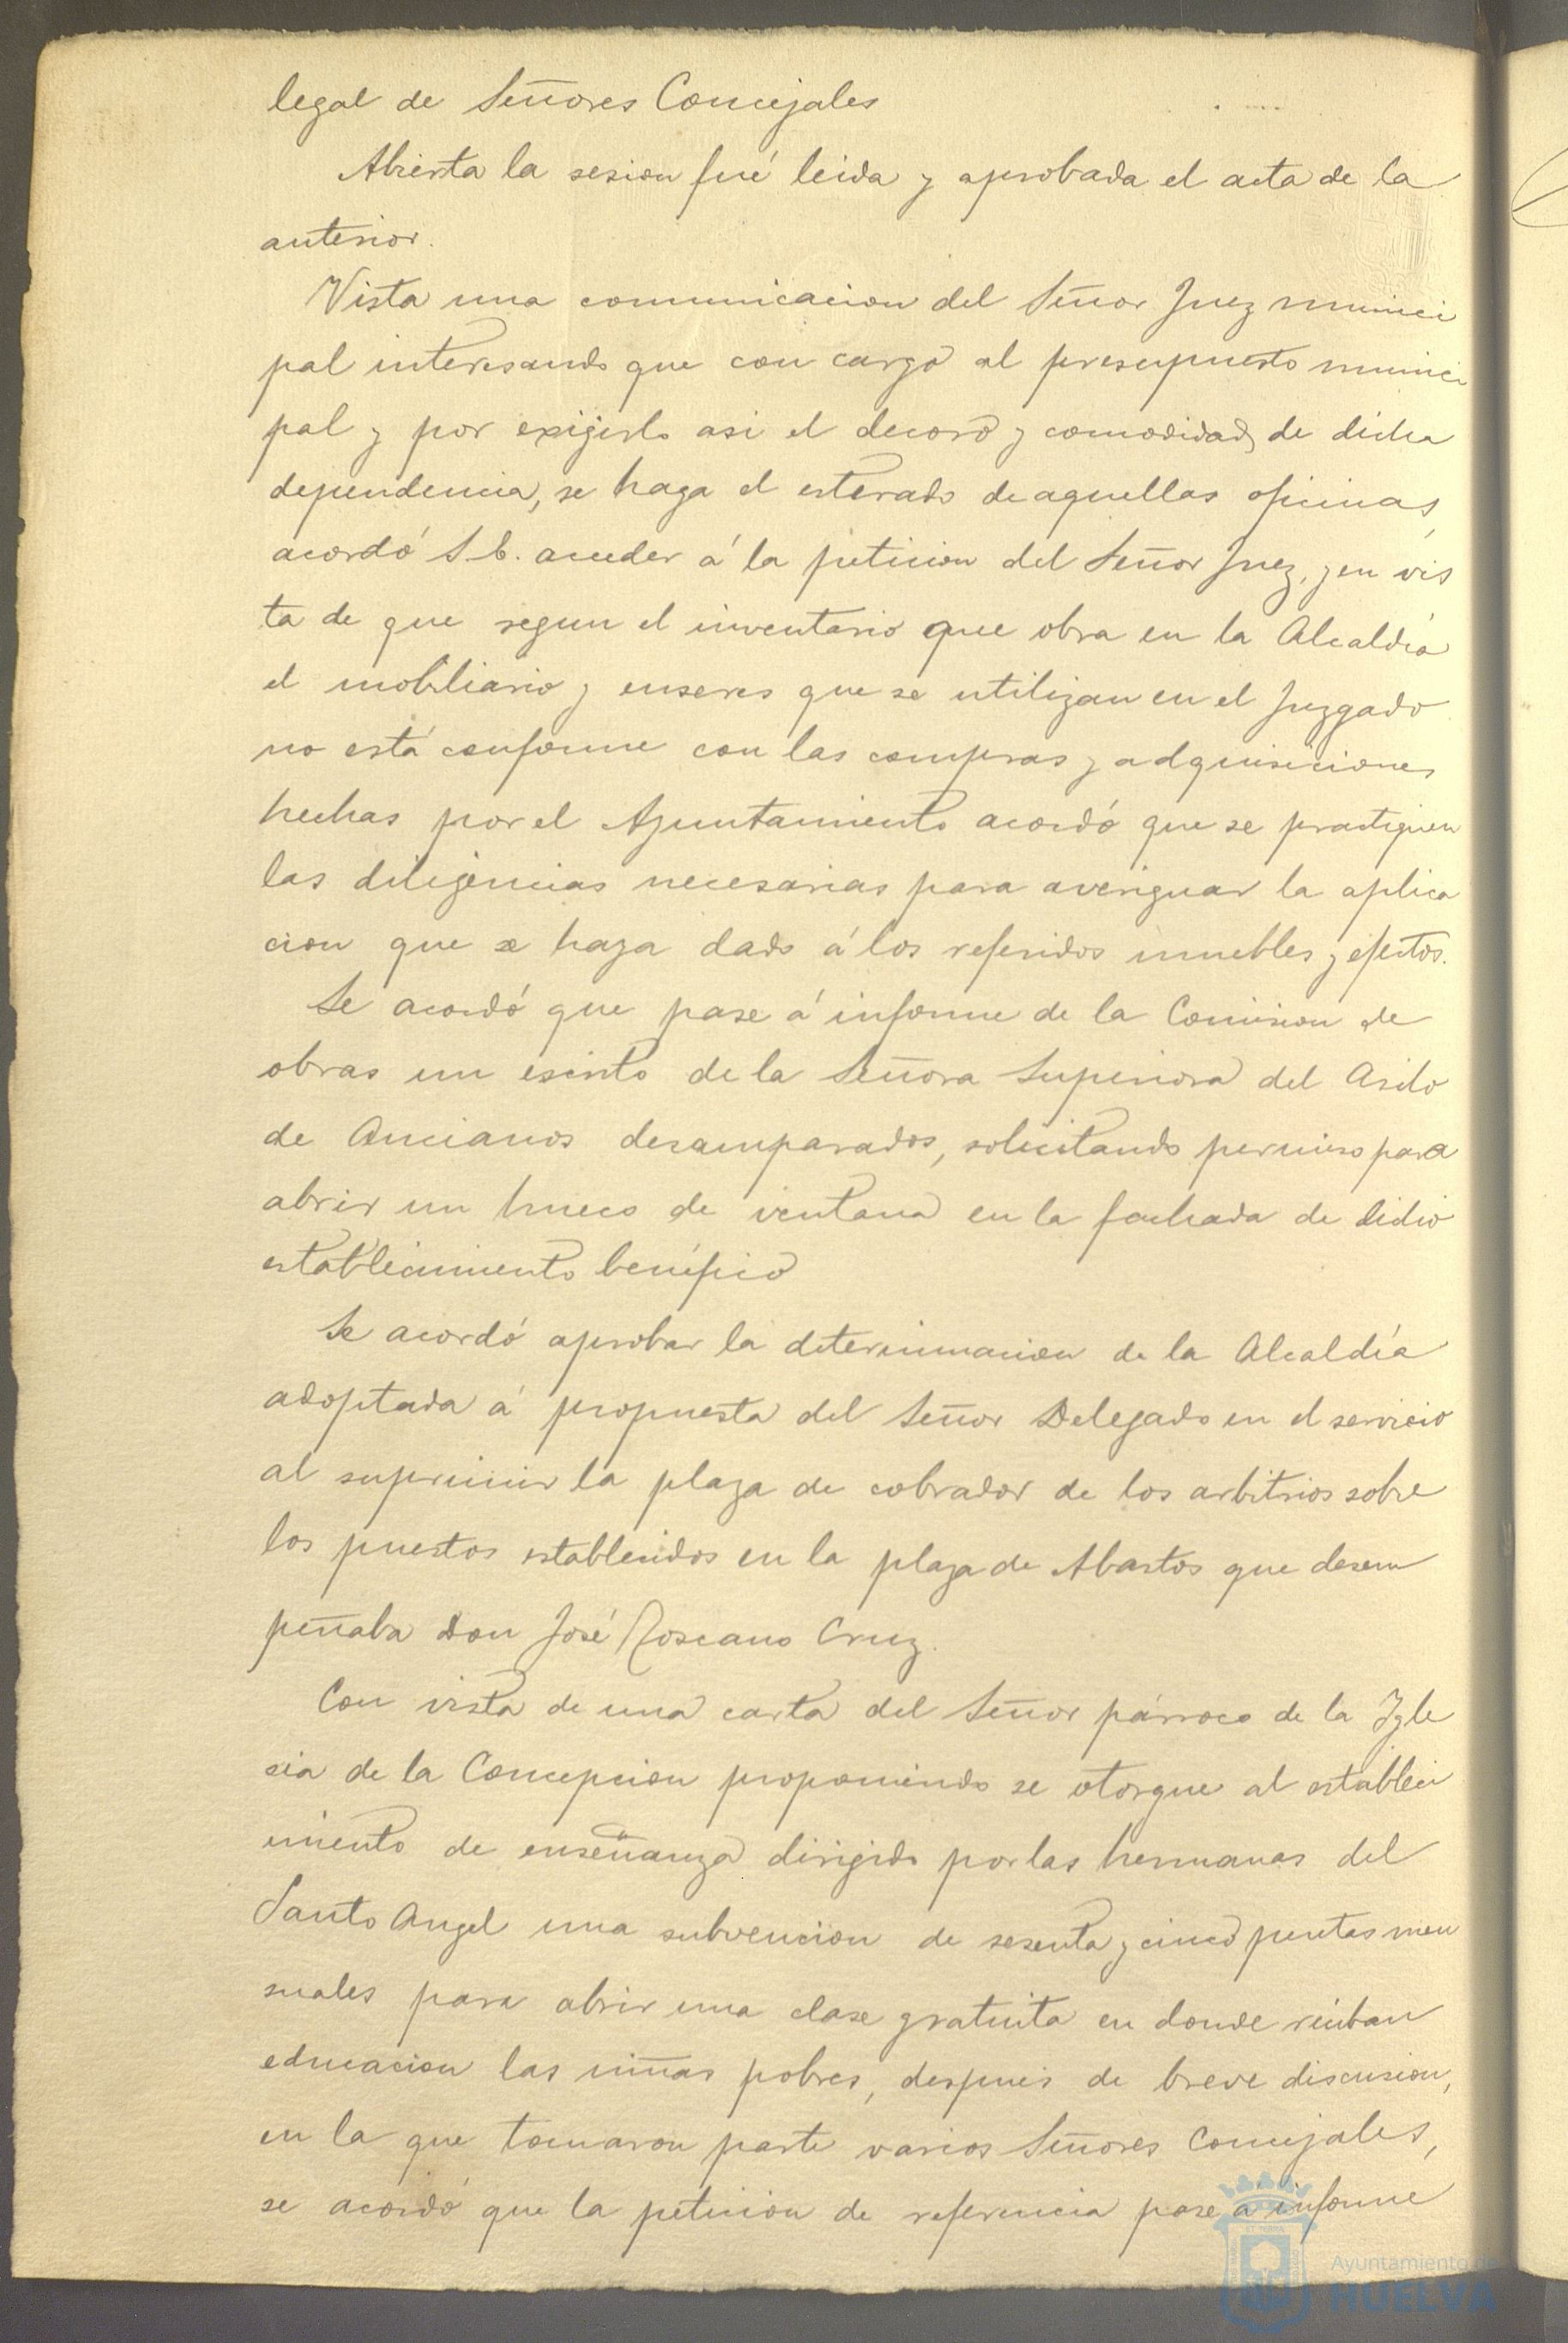 legal de Señores Concejales
Abierta la sesion fué leida y aprobada el acta de la
anterior.
Vista una comunicacion del Señor Juez munici
pal interesando que con cargo al presupuesto munici
pal y por exijirlo asi el decoro y comodidad de dicha
dependencia, se haga el esterado de aquellas oficinas,
acordó S. E. acceder á la peticion del Señor Juez, y en vis
ta de que segun el inventario que obra en la Alcaldia
el mobiliario y enseres que se utilizan en el Juzgado
no está conforme con las compras y adquisiciones
hechas por el Ayuntamiento acordó que se practiquen
las diligencias necesarias para averiguar la aplica
cion que se haya dado á los referidos muebles y efectos.
Se acordó que pase á informe de la Comision de
obras un escrito de la Señora Superiora del Asilo
de Ancianos desamparados, solicitando permiso para
abrir un hueco de ventana en la fachada de dicho
establecimiento benéfico
Se acordó aprobar la determinacion de la Alcaldía
adoptada á propuesta del Señor Delegado en el servicio
al suprimir la plaza de cobrador de los arbitrios sobre
los puestos establecidos en la plaza de Abastos que desem
peñaba Don José Toscano Cruz.
Con vista de una carta del Señor párroco de la Igle
sia de la Concepcion proponiendo se otorgue al estableci
miento de enseñanza dirigido por las hermanas del
Santo Angel una subvencion de sesenta y cinco pesetas men
suales para abrir una clase gratuita en donde reciban
educacion las niñas pobres, despues de breve discusion,
en la que tomaron parte varios Señores Concejales,
se acordó que la peticion de referencia pase á informe
Ayuntamiento de
HUELVA